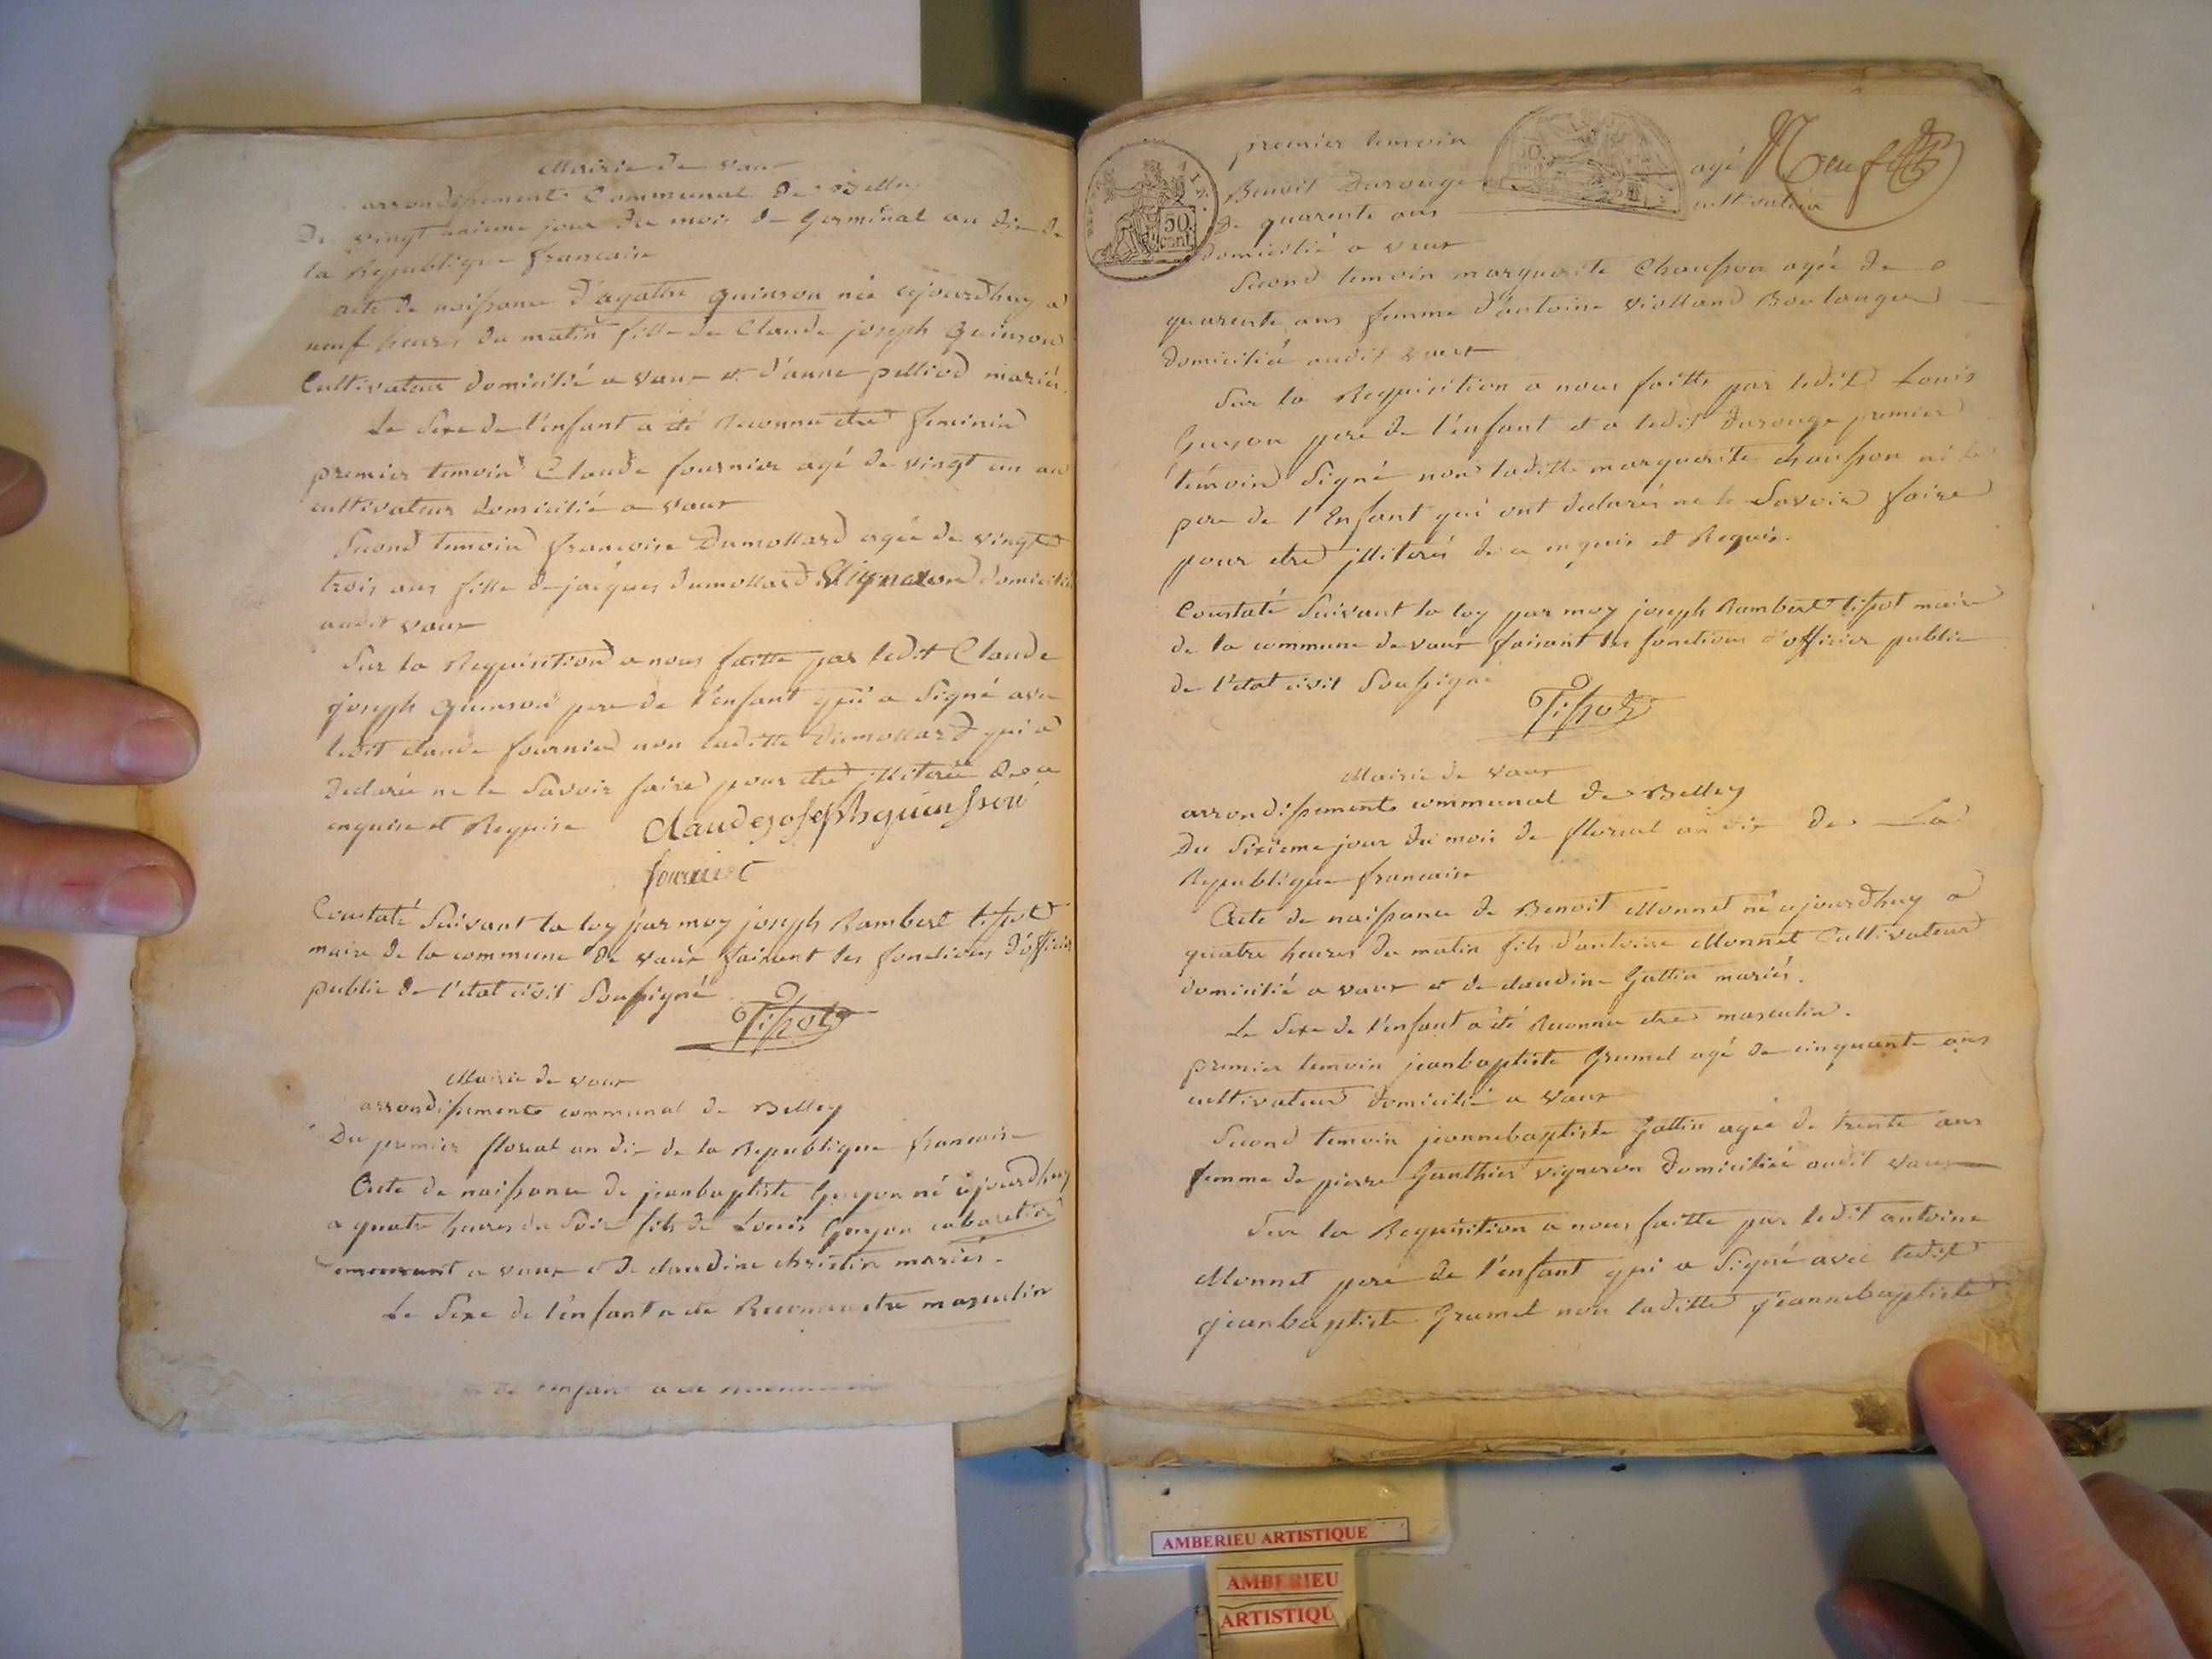 Mairie de Vaux
arrondissement Communal de Belley
Du vingt unieme jour du mois de Germinal an dix de
la Republique francaise
acte de naissance d'agathe quinson née ajourdhuy a
neuf heures du matin fille de Claude joseph Quinson
Cultivateur domicilié a vaux et d'anne pelliod mariés.
Le Sexe de l'enfant a été Reconnu etre feminin
premier temoin Claude fournier agé de vingt un an
cultivateur domicilié a vaux
Second temoin francoise Dumollard agée de vingt
trois ans fille de jacques dumollard Vigneron domicilié
audit vaux
Sur la Requisition a nous faitte par ledit Claude
joseph quinson pere de l'enfant qui a Signé avec
ledit claude fournier non laditte Dumollard qui a
declarée ne le Savoir faire pour etre illiterée de ce
enquise et Requise
Claudejosephquinsson
fournier
Constaté Suivant la loy par moy joseph Rambert tissot
maire de la commune de vaux faisant les fonctions d'officier
public de l'etat civil Soussigné
Tissot
Mairie de vaux
arrondissement communal de Belley
Du premier floreal an dix de la Republique francaise
Acte de naissance de jeanbaptiste Guyon né ajourdhuy
a quatre heures du Soir fils de Louis Guyon cabaretier
a vaux et de claudine christin mariés.
Le Sexe de l'enfant a été Reconnu etre masculin
premier temoin
Benoit Durouge agé
de quarente ans cultivateur
domicilié a vaux
50
cent.
Second temoin marguerite Chausson agée de
quarente ans femme d'antoine Violland Boulanger
domicilié audit vaux
Sur la Requisition a nous faitte par ledit Louis
Guyon pere de l'enfant et a ledit durouge premier
temoin Signé non laditte marguerite chausson ni le
pere de l'Enfant qui ont declarés ne le Savoir faire
pour etre illiterés de ce enquis et Requis.
Constaté Suivant la loy par moy joseph Rambert tissot maire
de la commune de vaux faisant les fonctions d'officier public
de l'etat civil Soussigné
Tissot
Mairie de vaux
arrondissement communal de Belley
Du Sixieme jour du mois de floreal an dix de La
Republique francaise
Acte de naissance de Benoit Monnet né ajourdhuy a
quatre heures du matin fils d'antoine Monnet Cultivateur
domicilié a vaux et de claudine Gallin mariés.
Le Sexe de l'enfant a été Reconnu etre masculin.
premier temoin jeanbaptiste Grumel agé de cinquante ans
cultivateur domicilié a vaux
Second temoin jeannebaptiste Gallin agée de trente ans
femme de pierre Gauthier vigneron domiciliée audit vaux
Sur la Requisition a nous faitte par ledit antoine
Monnet pere de l'enfant qui a Signé avec ledit
jeanbaptiste Grumel non laditte jeannebaptiste
AMBERIEU ARTISTIQUE
AMBERIEU
ARTISTIQU